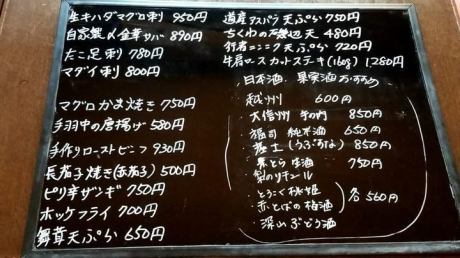 生キハダマグロ刺 950円
自家製〆金華サバ 890円
たこ足刺 780円
マダイ刺 800円
マグロかま焼き 750円
手羽中の唐揚げ 580円
手作りローストビーフ 930円
長茄子焼き(赤茄子) 500円
ピリ辛ザンギ 750円
ホッケフライ 700円
舞茸天ぷら 650円
道産アスパラ天ぷら 750円
ちくわの磯辺天 480円
行者ニンニク天ぷら 720円
牛肩ロースカットステキ(160g) 1,280円
日本酒、果実酒おすすめ
越州 600円
大信州 850円
福司 純米酒 650円
850円
生酒 750円
梨のリキュール
とろこく桃姫
赤とばの梅酒
深山ぶどう酒
各560円